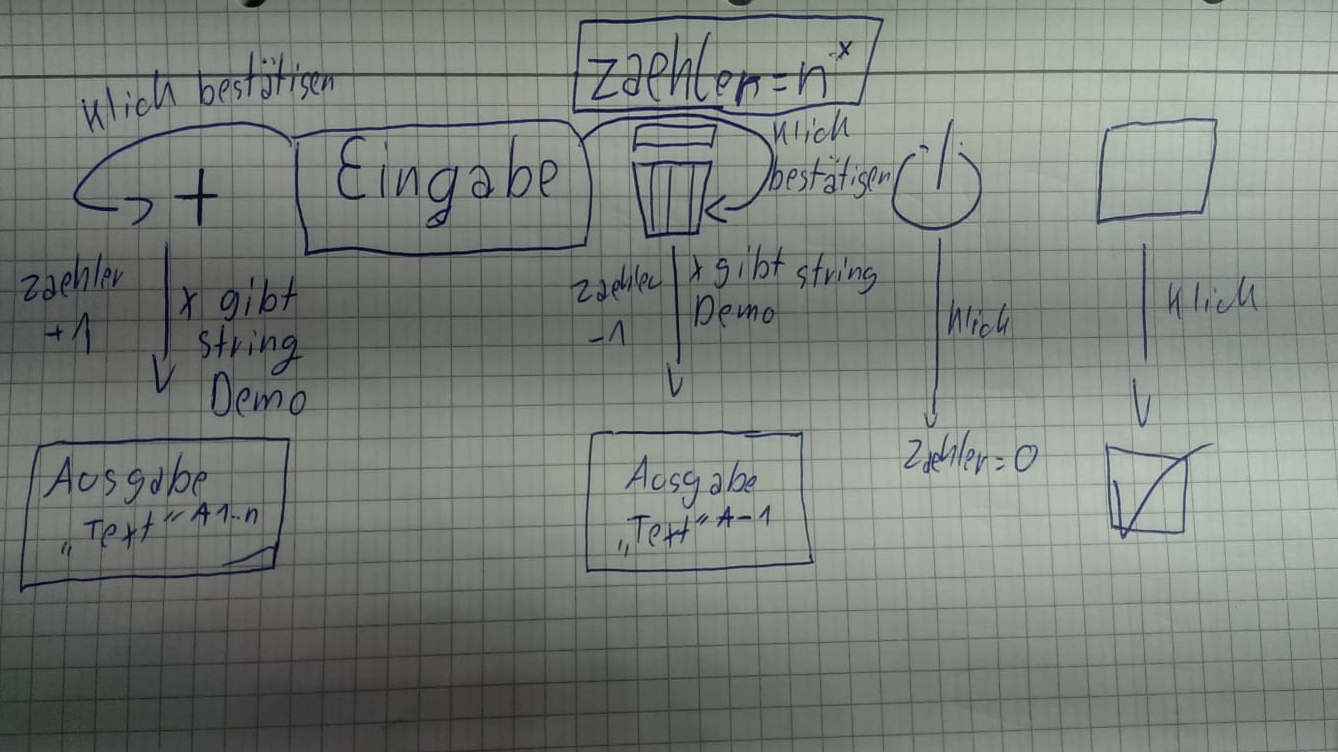 zaehler=n^x
Klick bestätigen
Eingabe
Klick
bestätigen
+
zaehler
+1
x gibt
string
Demo
zaehler
-1
x gibt string
Demo
Klick
Klick
Ausgabe
„Text“ A1..n
Ausgabe
„Text“ A-1
Zaehler=0